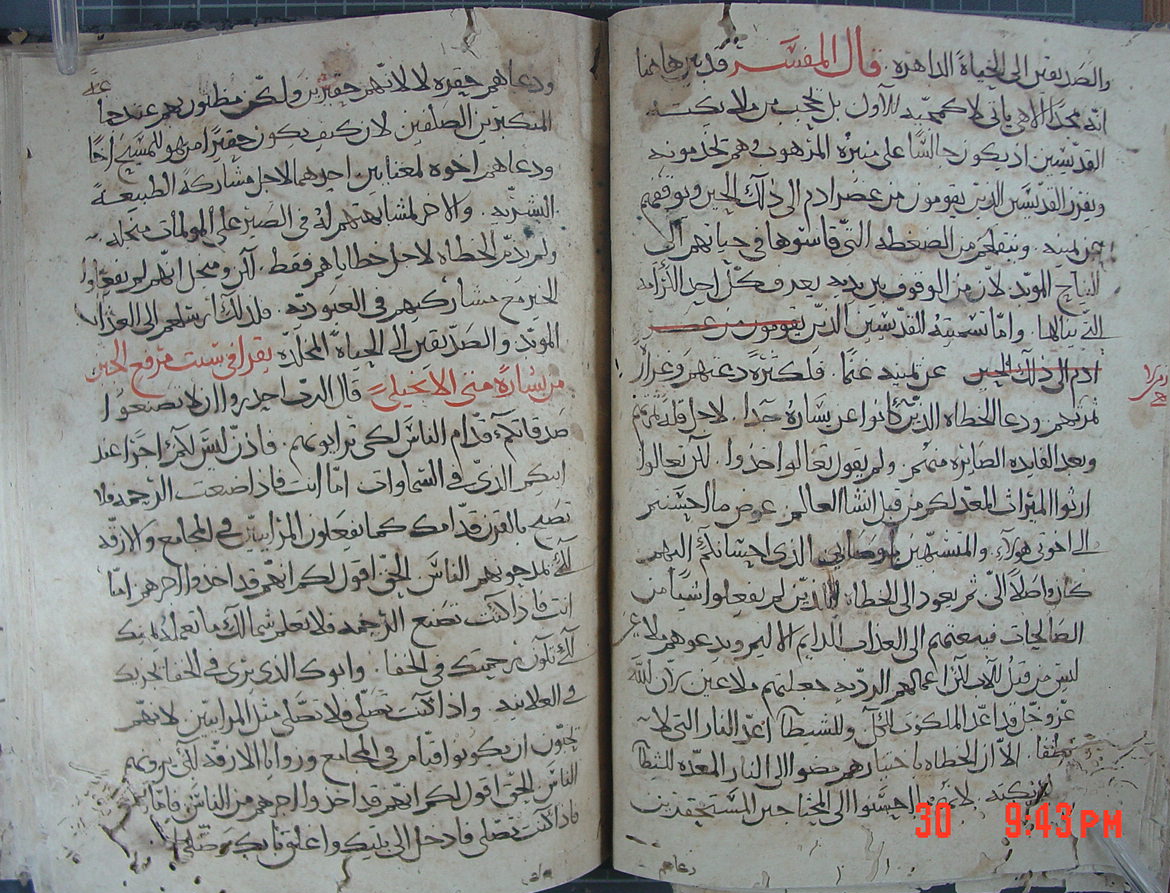 والصديقين الى الحياة الداهره. قال المفسر قد بين هاهنا
انه مجئه الاهى ياتى لا كمجيه الاول بل بحجب من ملايكته
القديسين اذ يكون جالسًا على منبره المرهوب وهم يخدمونه
ويفرز القديسين الذين يقومون من عصر ادم الى ذلك الحين ويوقفهم
عن يمينه. وينقلهم من الضغطه التى قاسوها فى حياتهم الى
النياح الموبد لان من الوقوف بين يديه يعرف كل احد الكرامه
التى ينالها. واما تسميته للقديسين الذين يقومون من عصر
ادم الى ذلك الحين عن يمينه غنمًا. فلكثرة دعتهم وغزاره
ثمرتهم. ودعا الخطاه الذين كانوا عن يساره جدا. لاجل قلة ثمرتهم
وبعد الفايده الصايره منهم. ولم يقول تعالوا خذوا. لكن تعالوا
ارثوا الميراث المعد لكم من قبل انشا العالم عوض ما احسنتم
الى اخوتى هولاء. والمتشبهين بى وصاياى الذى احسانكم اليهم
كان واصلاً الىّ ثم يعود الى الخطاه الذين لم يفعلوا شياً من
الصالحات فيبعثهم الى العذاب الدايم الاليم ويدعوهم ملاعين
ليس من قبل الاب لكن اعمالهم الرديه جعلتهم ملاعين لان الله
عز وجل قد اعد الملكوت للكل وللشيطان اعد النار التى لا
تطفا. الا ان الخطاه باختيارهم مضوا الى النار المعده للشيطان
وملايكته. لانهم لم يحسنوا الى المحتاجين المستحقدين
دعاهم
ودعاهم حقيره لا لانهم حقيرين ولكن مظنون بهم عند هاولا
المتكبرين الصلفين لان كيف يكون حقيرًا من هو للمسيح اخًا
ودعاهم اخوه لمعنايين احدهما لاجل مشاركة الطبيعة
البشريه. والاخر لمشابهتهم له فى الصبر على المولمات من اجله
ولم يذم الخطاه لاجل خطاياهم فقط. لكن ومن اجل انهم لم يفعلوا
الخير مع مشاركيهم فى العبوديه. فلذلك أرسلهم الى العذاب
الموبد والصديقين الى الحياة المخلده يقرا فى سبت مرفع الجبن
من بشارة متى الانجيلى قال الرب احذروا ان لا تصنعوا
صدقاتكم قدام الناس لكى تراؤنهم. فاذن ليس لكم اجرًا عند
ابيكم الذى فى السماوات اما انت فاذا صنعت الرحمه فلا
تصيح بالقرن قدامك كما يفعلون المرايين فى المجامع والازقه
لكى يمدحونهم الناس الحق اقول لكم انهم قد اخذوا اجرهم امّا
انت فاذا كنت تصنع الرحمه فلا تعلم شمالك ما تعمله يمينك
لكى تكون رحمتك فى الخفا. وابوك الذى يرى فى الخفا يجزيك
فى العلانيه. واذا كنت تصلى فلا تصلى مثل المرايين لانهم
يحبون ان يكونوا قيام فى المجامع وزوايا الازقه لكى يروهم
الناس الحق اقول لكم انهم قد اخذوا اجرهم من الناس فامّا
فاذا كنت تصلى فادخل الى بيتك واغلق بابك وصلى
30 9:43 PM